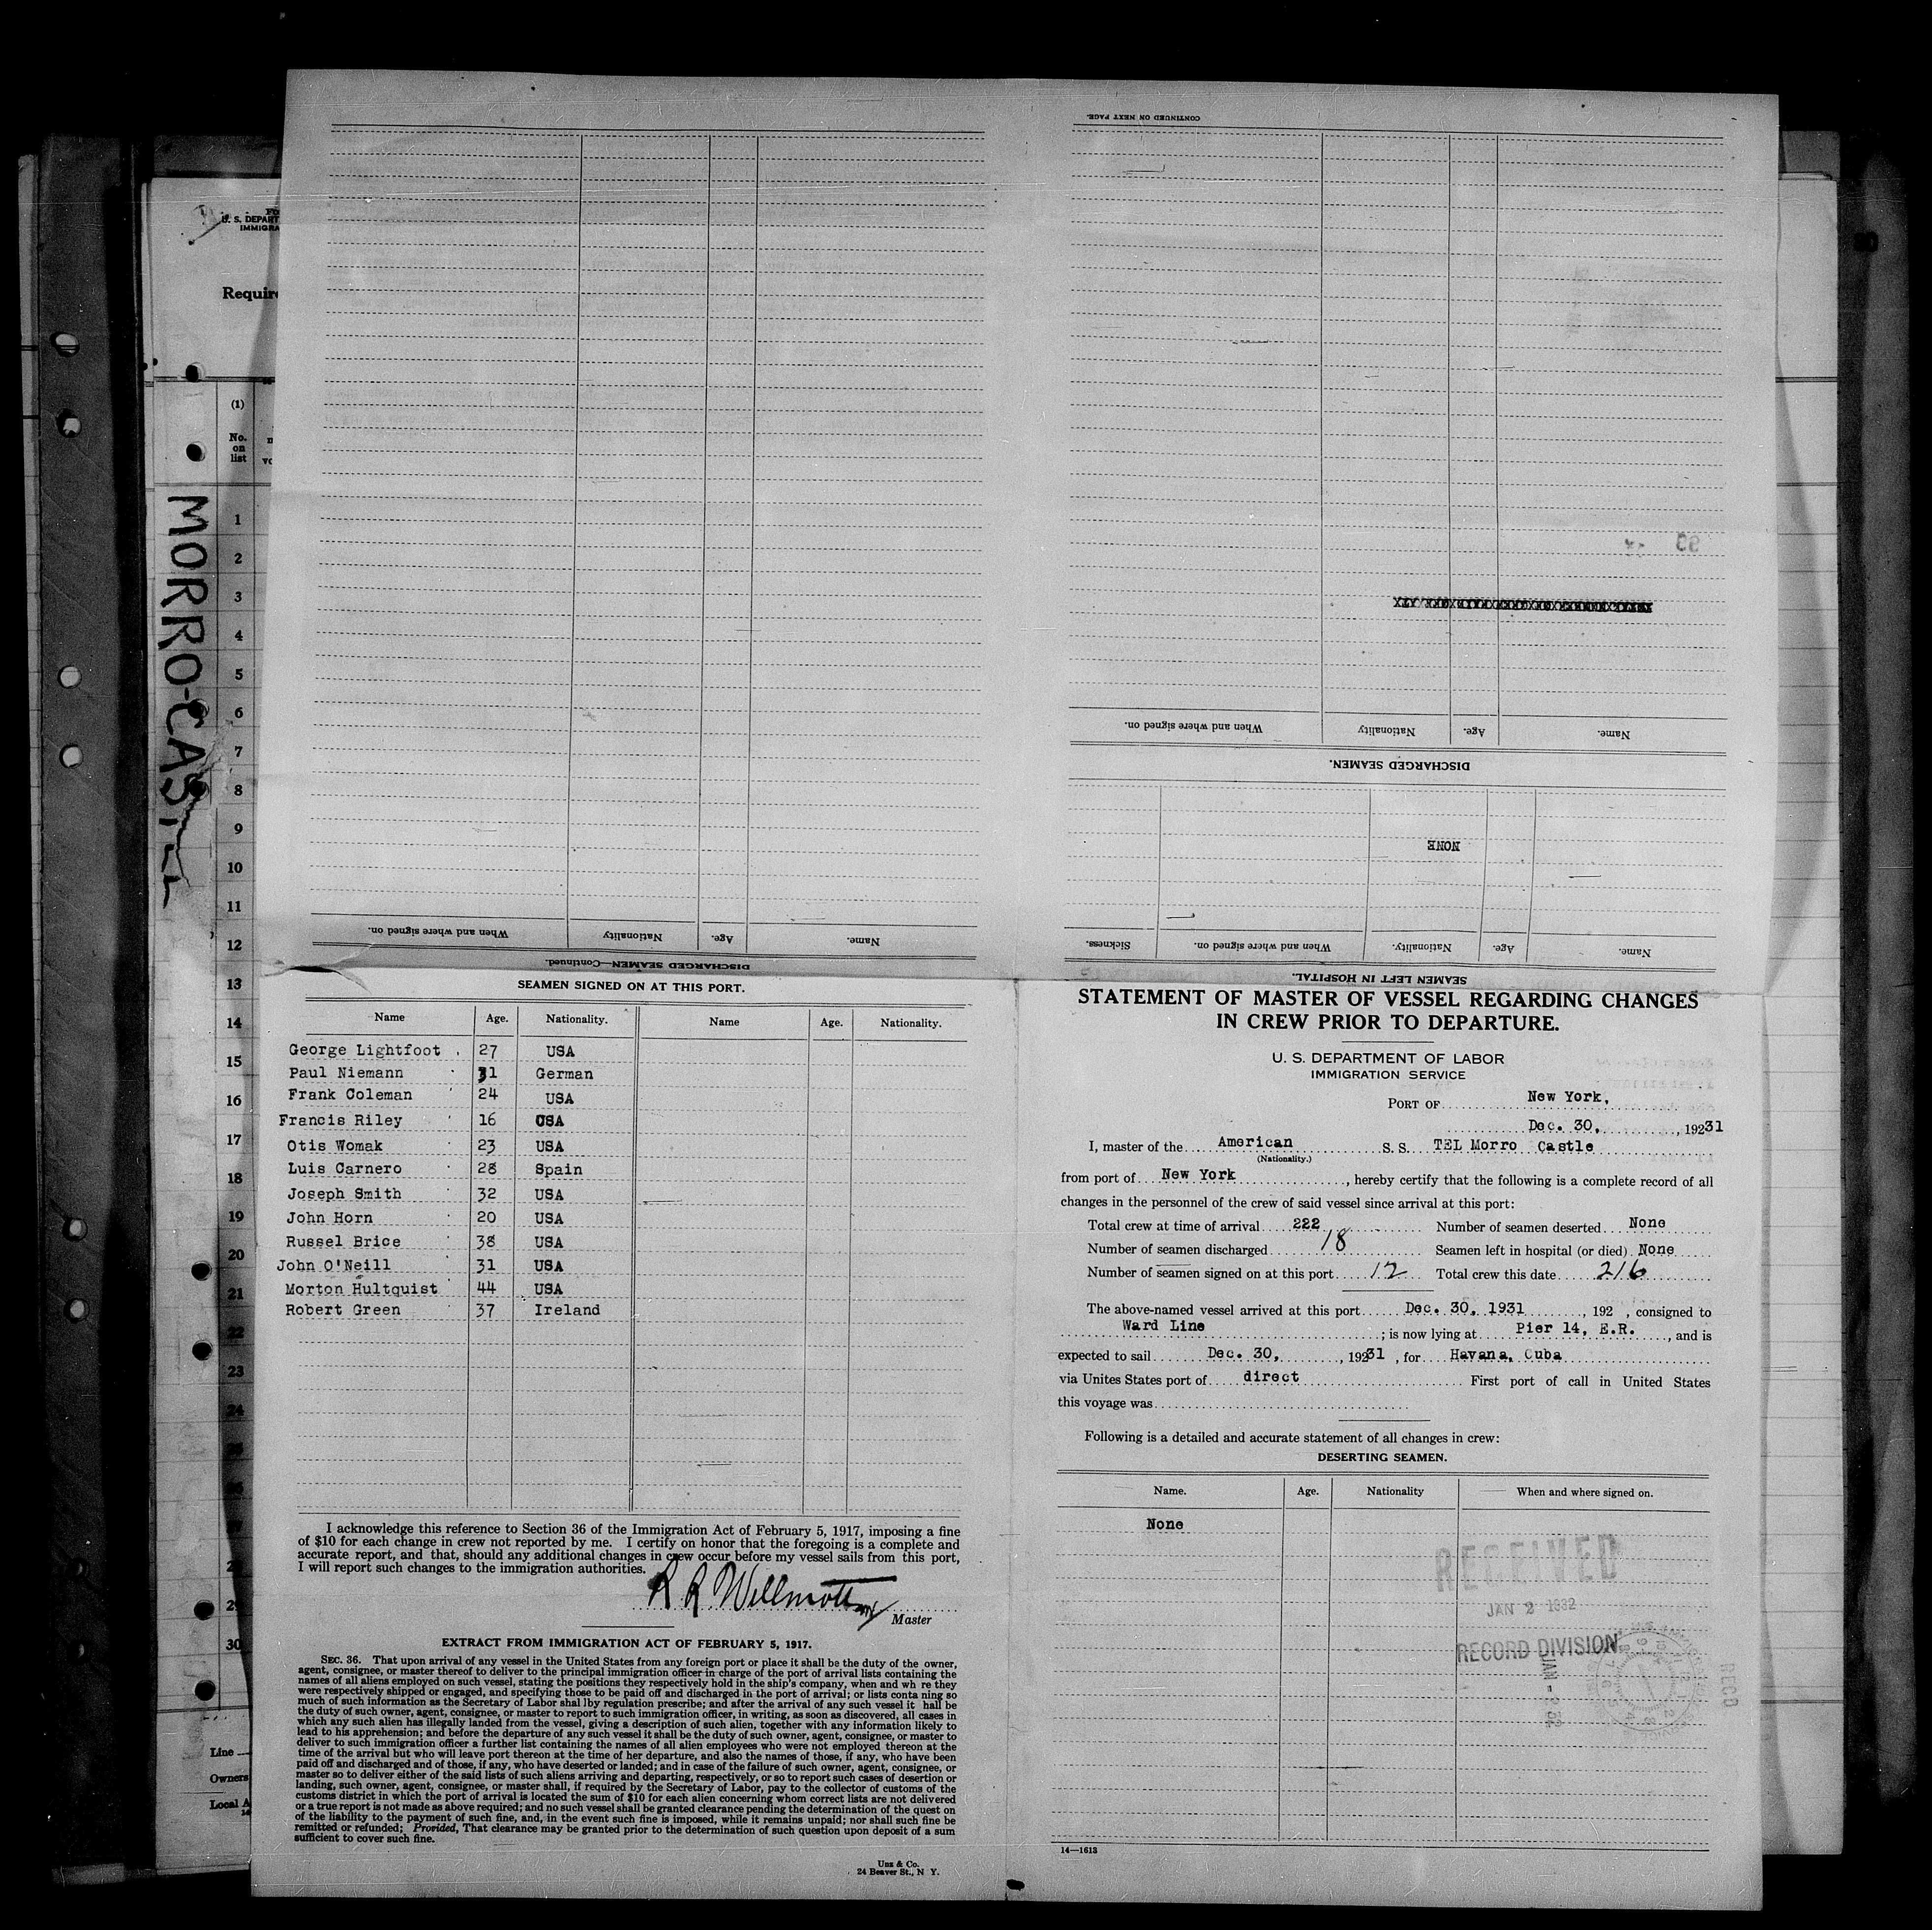 MORRO-CASTLE
U. S. DEPART
IMMIGRA
Require
(1)
No.
on
list
1
2
3
4
5
6
7
8
9
10
11
12
13
14
15
16
17
18
19
20
21
22
23
24
25
26
27
28
29
30
Line
Owners
Local A
DISCHARGED SEAMEN—Continued.
Name. Age. Nationality When and where signed on.
SEAMEN LEFT IN HOSPITAL.
Name. Age. Nationality. When and where signed on. Sickness.
NONE
DISCHARGED SEAMEN.
Name. Age. Nationality When and where signed on.
CONTINUED ON NEXT PAGE.
SEAMEN SIGNED ON AT THIS PORT.
Name Age. Nationality. Name Age. Nationality.
George Lightfoot . 27 USA
Paul Niemann 31 German
Frank Coleman 24 USA
Francis Riley 16 USA
Otis Womak 23 USA
Luis Carnero 28 Spain
Joseph Smith 32 USA
John Horn 20 USA
Russel Brice 38 USA
John O'Neill 31 USA
Morton Hultquist 44 USA
Robert Green 37 Ireland
I acknowledge this reference to Section 36 of the Immigration Act of February 5, 1917, imposing a fine
of $10 for each change in crew not reported by me. I certify on honor that the foregoing is a complete and
accurate report, and that, should any additional changes in crew occur before my vessel sails from this port,
I will report such changes to the immigration authorities.
R R Willmott
Master
EXTRACT FROM IMMIGRATION ACT OF FEBRUARY 5, 1917.
SEC. 36. That upon arrival of any vessel in the United States from any foreign port or place it shall be the duty of the owner,
agent, consignee, or master thereof to deliver to the principal immigration officer in charge of the port of arrival lists containing the
names of all aliens employed on such vessel, stating the positions they respectively hold in the ship's company, when and wh re they
were respectively shipped or engaged, and specifying those to be paid off and discharged in the port of arrival; or lists conta ning so
much of such information as the Secretary of Labor shal lby regulation prescribe; and after the arrival of any such vessel it hall be
the duty of such owner, agent, consignee, or master to report to such immigration officer, in writing, as soon as discovered, all cases in
which any such alien has illegally landed from the vessel, giving a description of such alien, together with any information likely to
lead to his apprehension; and before the departure of any such vessel it shall be the duty of such owner, agent, consignee, or master to
deliver to such immigration officer a further list containing the names of all alien employees who were not employed thereon at the
time of the arrival but who will leave port thereon at the time of her departure, and also the names of those, if any, who have been
paid off and discharged and of those, if any, who have deserted or landed; and in case of the failure of such owner, agent, consignee, or
master so to deliver either of the said lists of such aliens arriving and departing, respectively, or so to report such cases of desertion or
landing, such owner, agent, consignee, or master shall, if required by the Secretary of Labor, pay to the collector of customs of the
customs district in which the port of arrival is located the sum of $10 for each alien concerning whom correct lists are not delivered
or a true report is not made as above required; and no such vessel shall be granted clearance pending the determination of the quest on
of the liability to the payment of such fine, and, in the event such fine is imposed, while it remains unpaid; nor shall such fine be
remitted or refunded; Provided, That clearance may be granted prior to the determination of such question upon deposit of a sum
sufficient to cover such fine.
Unz & Co.
24 Beaver St., N Y.
STATEMENT OF MASTER OF VESSEL REGARDING CHANGES
IN CREW PRIOR TO DEPARTURE.
U. S. DEPARTMENT OF LABOR
IMMIGRATION SERVICE
PORT OF New York,
Dec. 30, , 19231
I, master of the American S. S. TEL Morro Castle
(Nationality.)
from port of New York , hereby certify that the following is a complete record of all
changes in the personnel of the crew of said vessel since arrival at this port:
Total crew at time of arrival 222 Number of seamen deserted None
Number of seamen discharged 18 Seamen left in hospital (or died) None
Number of seamen signed on at this port 12 Total crew this date 216
The above-named vessel arrived at this port Dec. 30, 1931 , 192 , consigned to
Ward Line ; is now lying at Pier 14, E.R. , and is
expected to sail Dec. 30, , 19231 , for Havana, Cuba
via Unites States port of direct First port of call in United States
this voyage was
Following is a detailed and accurate statement of all changes in crew:
DESERTING SEAMEN.
Name. Age. Nationality When and where signed on.
None
RECEIVED
JAN 2 1932
RECORD DIVISION
JAN - 2 32
REC'D
14—1613